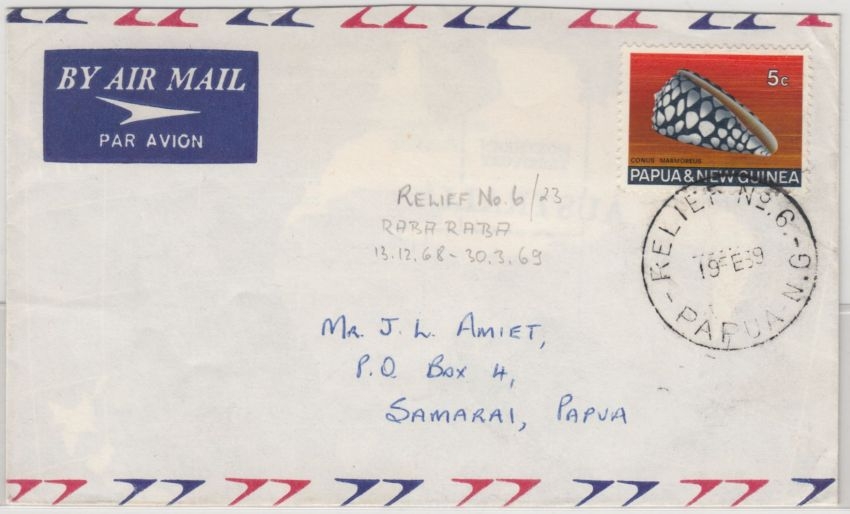 BY AIR MAIL
PAR AVION
5c
CONUS MARMOREUS
PAPUA & NEW GUINEA
RELIEF No. 6.
19 FE 69
PAPUA N.G
RELIEF No. 6/23
RABA RABA
13.12.68 - 30.3.69
MR. J. L. AMIET,
P.O. BOX 4,
SAMARAI, PAPUA